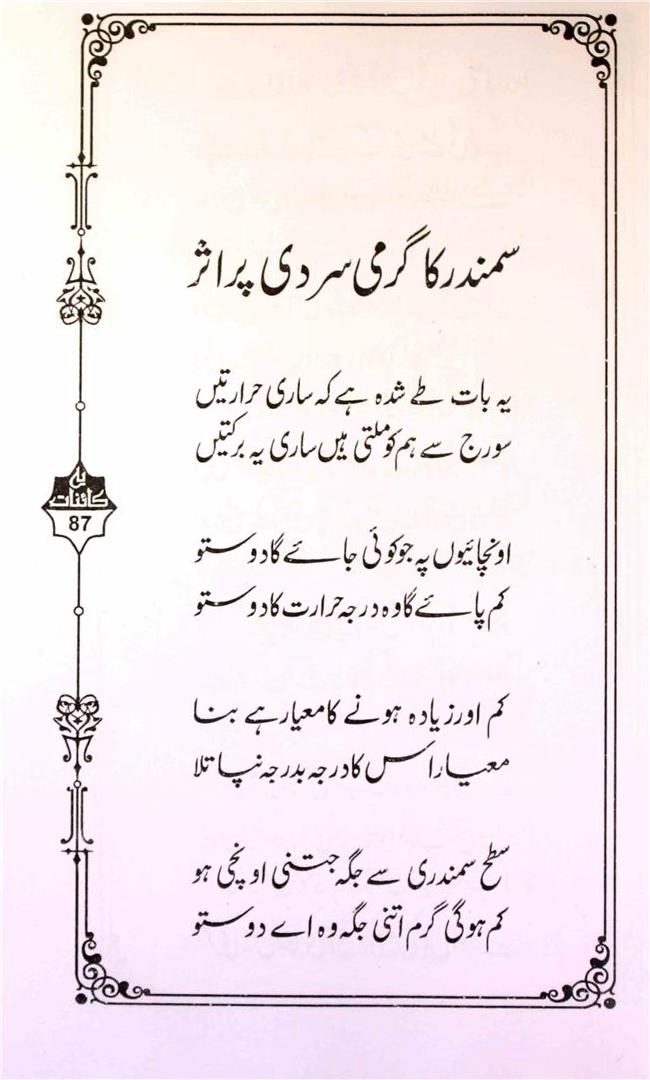 سمندر کا گرمی سردی پر اثر
یہ بات طے شدہ ہے کہ ساری حرارتیں
سورج سے ہم کو ملتی ہیں ساری یہ برکتیں
اونچائیوں پہ جو کوئی جائے گا دوستو
کم پائے گا وہ درجہ حرارت کا دوستو
کم اور زیادہ ہونے کا معیار ہے بنا
معیار اس کا درجہ بدرجہ نپا تلا
سطح سمندری سے جگہ جتنی اونچی ہو
کم ہوگی گرم اتنی جگہ وہ اے دوستو
کائنات
87